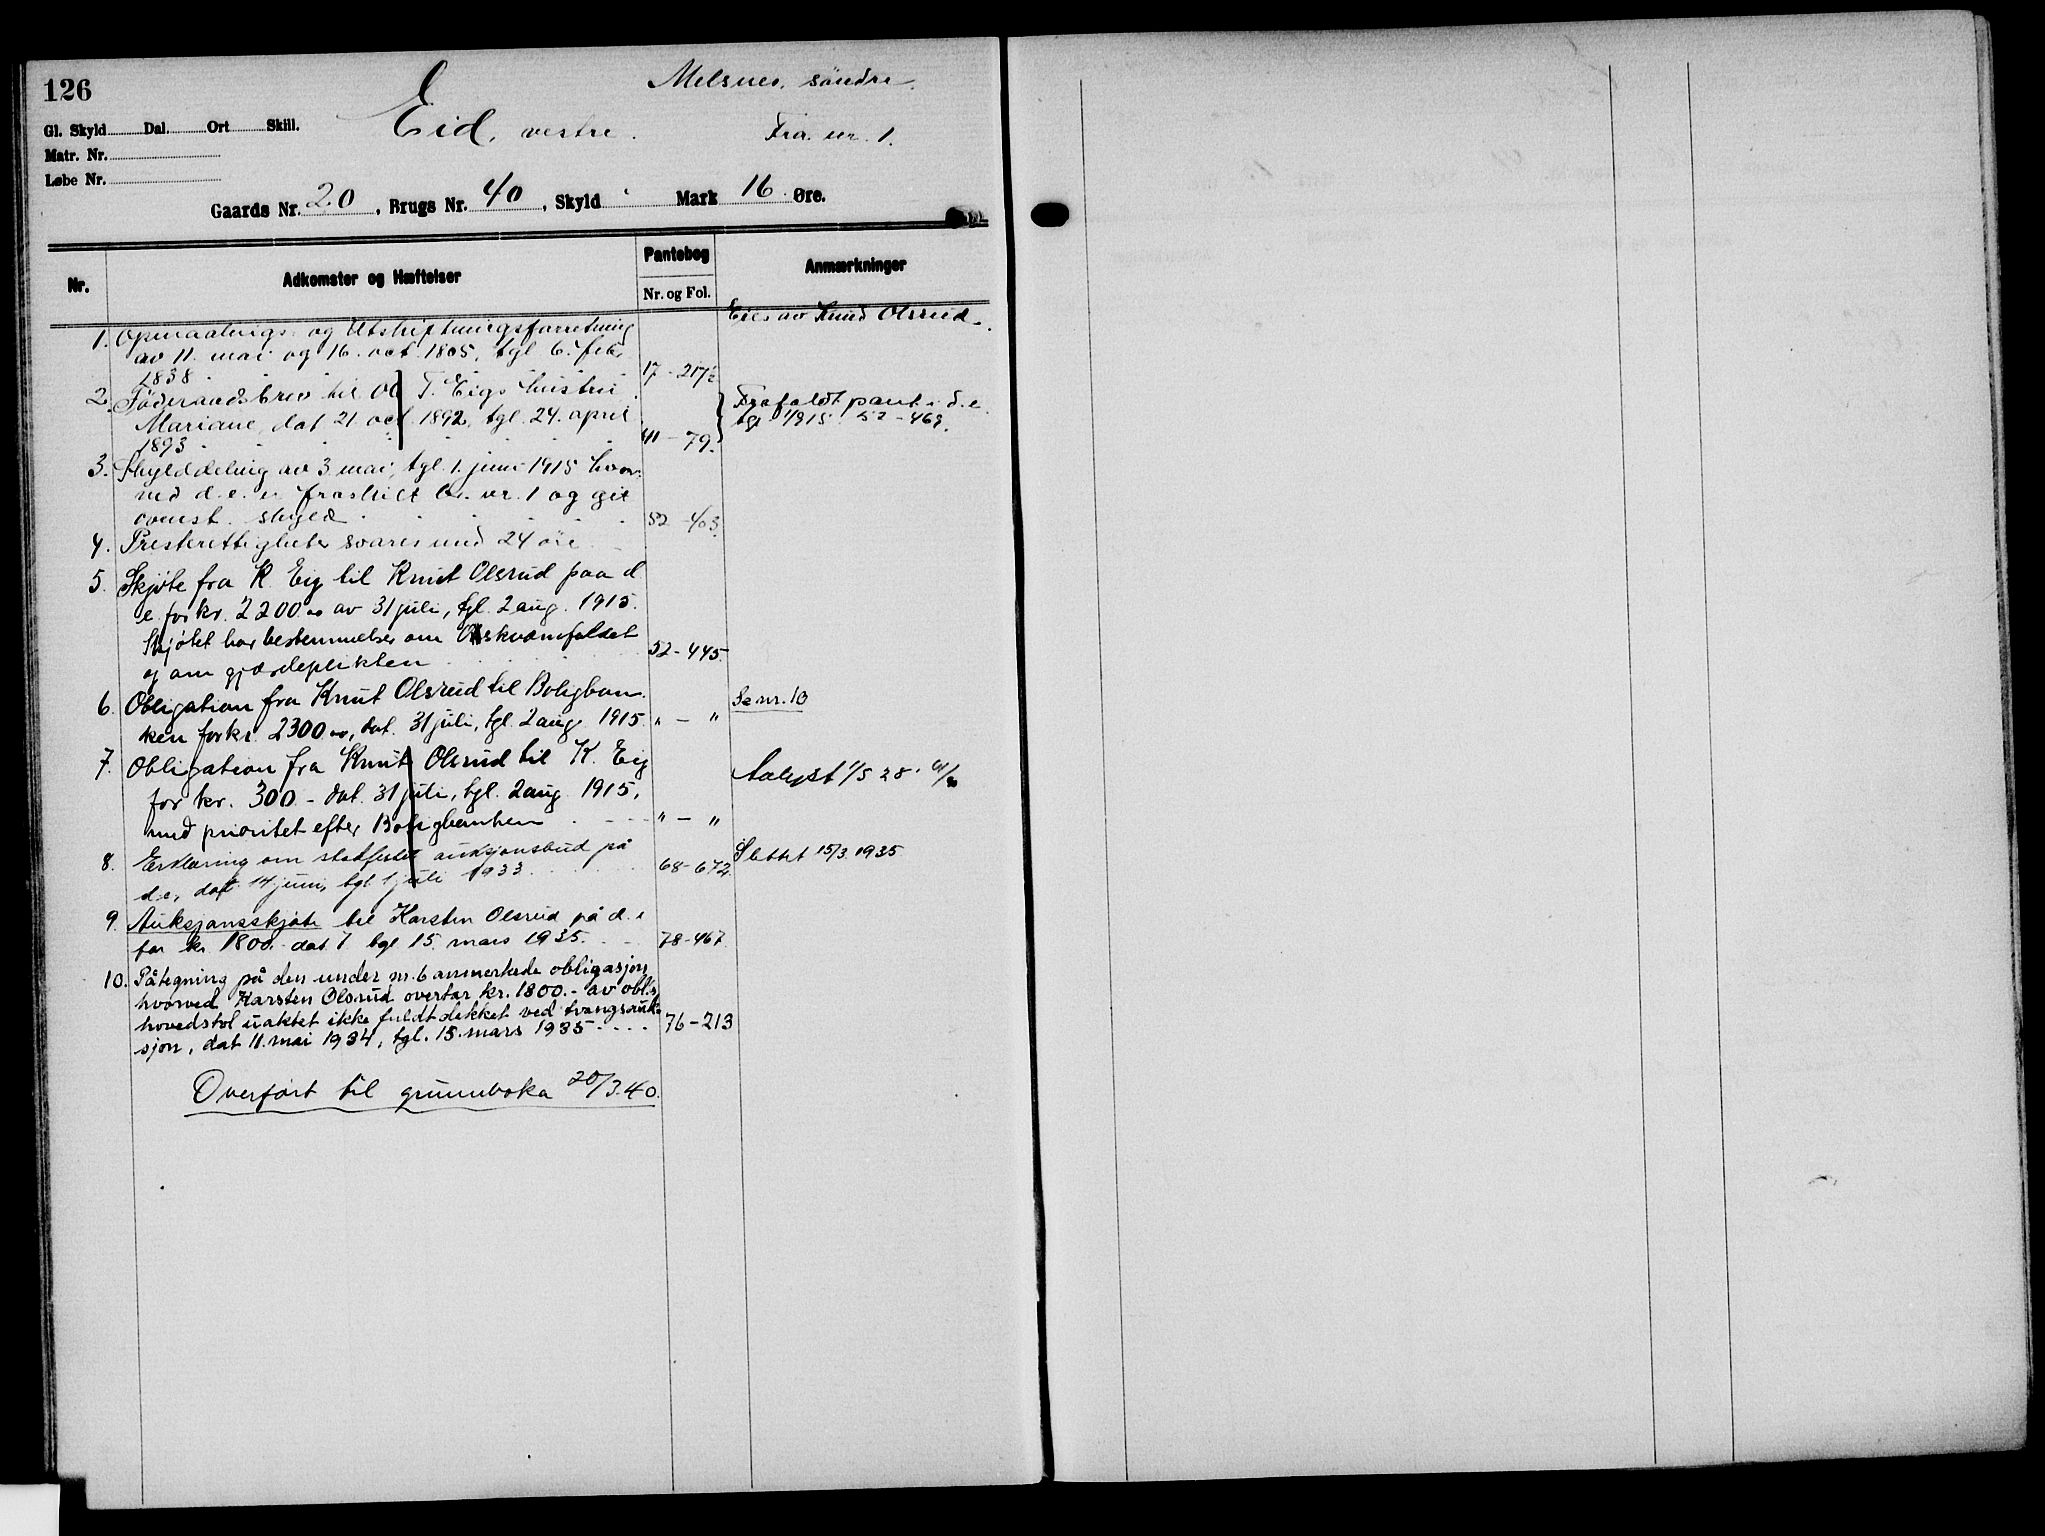 126
Eid, vestre.
Melsnes, søndre.
Fra nr. 1.
Gl. Skyld Dal. Ort Skill.
Matr. Nr.
Løbe Nr.
Gaards Nr. 20, Brugs Nr. 40, Skyld Mark 16 Øre.
Nr. Adkomster og Hæftelser Pantebog Nr. og Fol. Anmærkninger
Eies av Knud Olsrud.
1. Opmaalings- og Utskiftningsforretning
av 11. mai og 16. oct. 1805, tgl. 6. feb.
1838 17 - 217½
2. Føderaadsbrev til Ol T. Eigs hustru
Mariane, dat 21 oct. 1892, tgl. 24. april
1893 41 - 79.
Frafaldt pant i d.e.
tgl 1/9 15 52 - 469.
3. Skylddeling av 3 mai, tgl. 1. juni 1915 hvor-
ved d.e. er fraskilt br. nr. 1 og git
ovenst. skyld 52 - 403.
4. Presterettigheter svares med 24 øre
5. Skjøte fra K. Eig til Knut Olsrud paa d
e. for kr. 2200.00 av 31 juli, tgl. 2 aug. 1915.
Skjøtet har bestemmelser om
og om gjærdeplikten 52 - 445.
6. Obligation fra Knut Olsrud til Boligban-
ken for kr. 2300.00, dat. 31 juli, tgl. 2 aug. 1915. " - " Se nr. 10
7. Obligation fra Knut Olsrud til K. Eig
for kr. 300.- dat. 31 juli, tgl. 2 aug. 1915,
med prioritet efter Boligbanken " - "
Avlyst 1/5 28.
8. Erklæring om stadfestet auksjonsbud på
d.e, dat. 14 juni, tgl. 1 juli 1933 68 - 672. Slettet 15/3 1935
9. Auksjonsskjøte til Karsten Olsrud på d. e
for kr. 1800.- dat 7 tgl 15. mars 1935. 78 - 467
10. Påtegning på den under nr. 6 anmerkede obligasjon
hvorved Karsten Olsrud overtar kr. 1800.- av obl.s
hovedstol uaktet ikke fuldt dekket ved tvangsauk-
sjon, dat 11. mai 1934, tgl. 15. mars 1935 76 - 213
Overført til grunnboka 20/3.40.